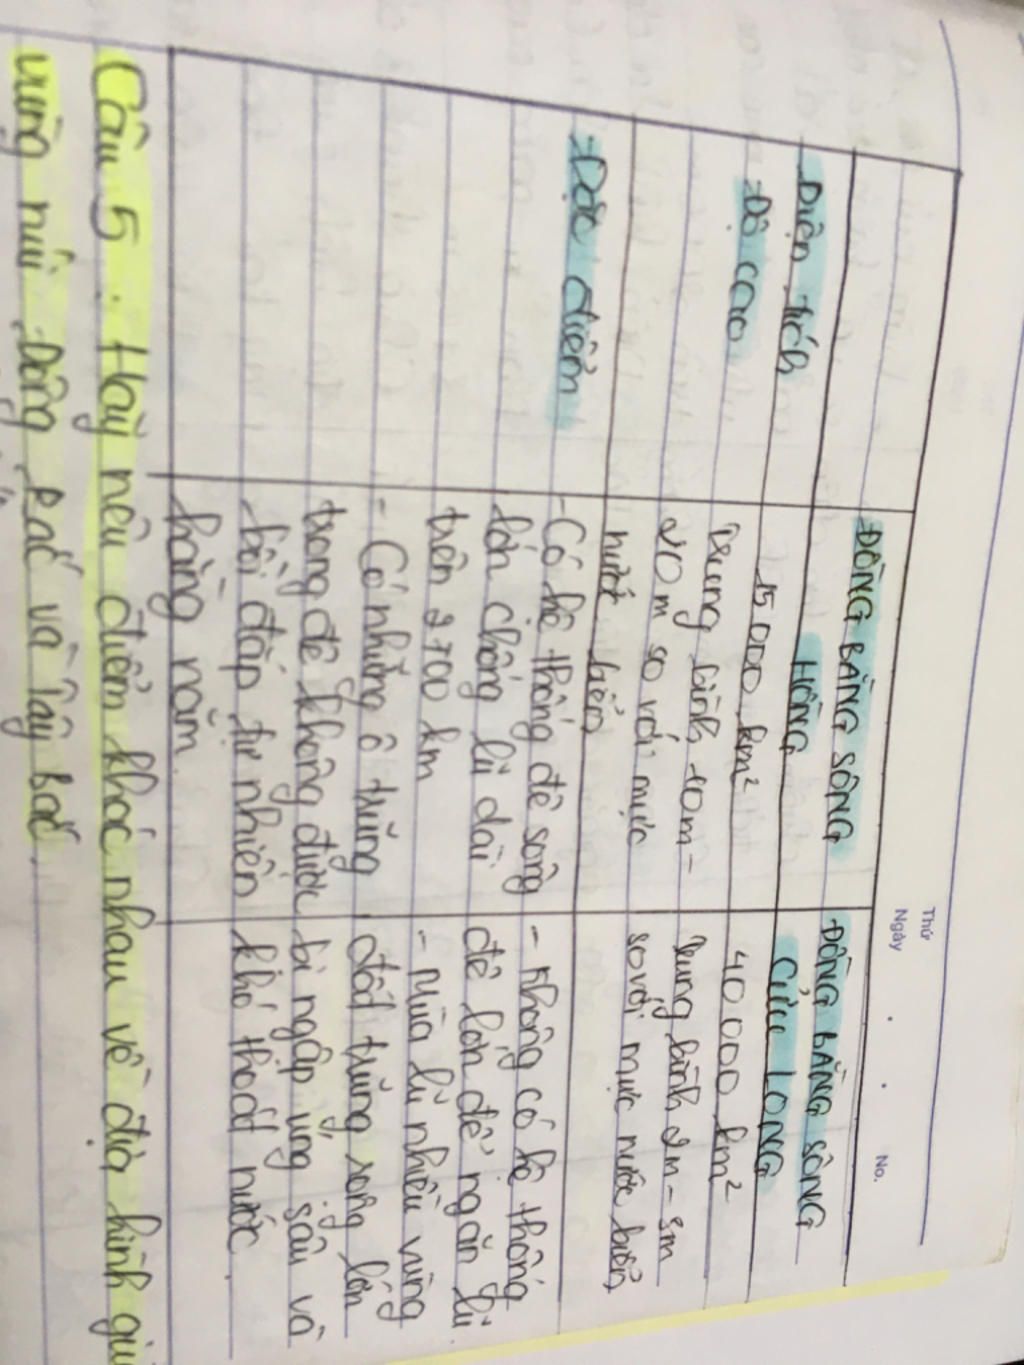 Thứ
Ngày . . No.
ĐỒNG BẰNG SÔNG
HỒNG
ĐỒNG BẰNG SÔNG
CỬU LONG
Diện tích
15000 km²
40000 km²
-Độ cao
Trung bình 10m-
20m so với mực
nước biển
Trung bình 2m-5m
so với mực nước biển
-Đặc điểm
-Có hệ thống đê sông
lớn chống lũ dài
trên 2700 km
- Có những ô trũng
trong đê không được
bồi đắp tự nhiên
hằng năm.
- Không có hệ thống
đê lớn để ngăn lũ
- Mùa lũ nhiều vùng
đất trũng rộng lớn
bị ngập úng sâu và
khó thoát nước.
Câu 5. Hãy nêu điểm khác nhau về địa hình giữ
vùng núi Đông Bắc và Tây Bắc.